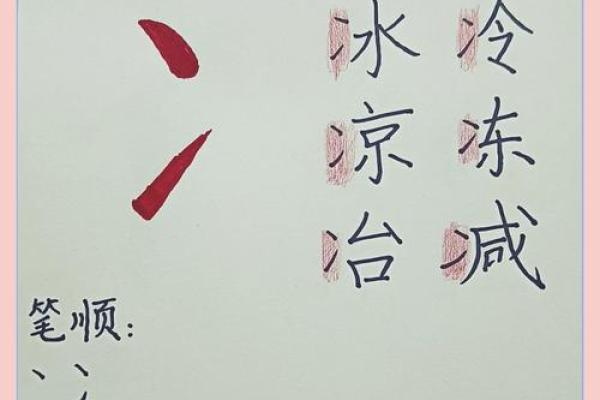 冫 冰 冷
凉 冻
冶 减
笔顺:
丶 冫